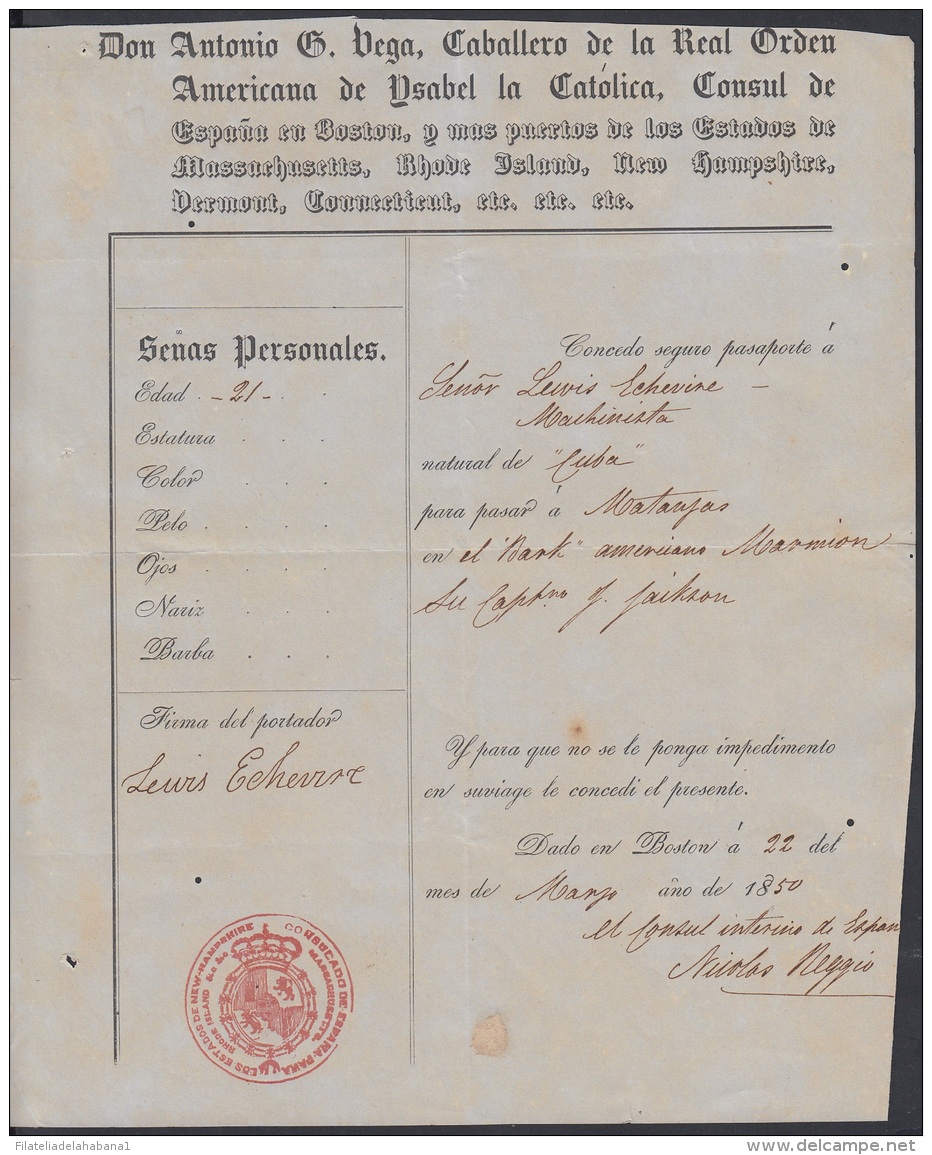 Don Antonio G. Vega, Caballero de la Real Orden
Americana de Ysabel la Católica, Consul de
España en Boston, y mas puertos de los Estados de
Massachusetts, Rhode Island, New Hampshire,
Vermont, Connecticut, etc. etc. etc.
Señas Personales.
Edad . - 21 - . .
Estatura . . .
Color . . .
Pelo . . . .
Ojos . . . .
Nariz . . .
Barba . . .
Firma del portador
Lewis Echevire
Concedo seguro pasaporte á
Señor Lewis Echevire -
Machinista
natural de "Cuba"
para pasar á Matanzas
en el "Bark" americano Marmion
Su Captno J. Jackson
Y para que no se le ponga impedimento
en suviage le concedi el presente.
Dado en Boston á 22 del
mes de Marzo año de 1850
el Consul interino de Espan
Nicolas Reggio
CONSULADO DE ESPAÑA PARA LOS ESTADOS DE NEW-HAMPSHIRE
MASSACHUSETTS, RHODE ISLAND &c &c
Filateliadelahabana1
delcampe.net